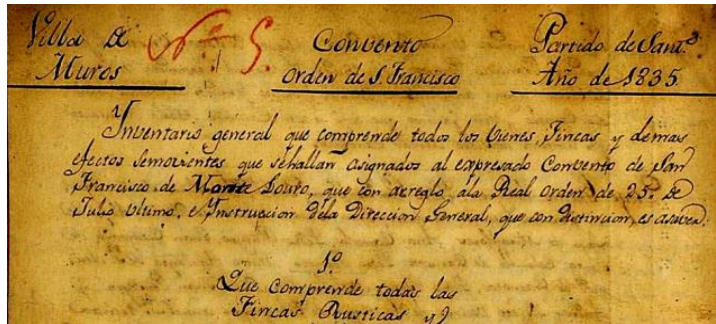 Villa de
Muros
Nº 5.
Convento
Orden de S. Francisco
Partido de Sant.º
Año de 1835
Ynventario general que comprende todos los vienes, Fincas y demas
efectos semovientes que sehallan asignados al expresado Convento de San
Francisco de Monte Louro, que con arreglo ala Real orden de 25. de
Julio ultimo, e Ynstruccion dela Direccion General, que con distincion, es asaver.
1º
Que comprende todas las
Fincas Rusticas y